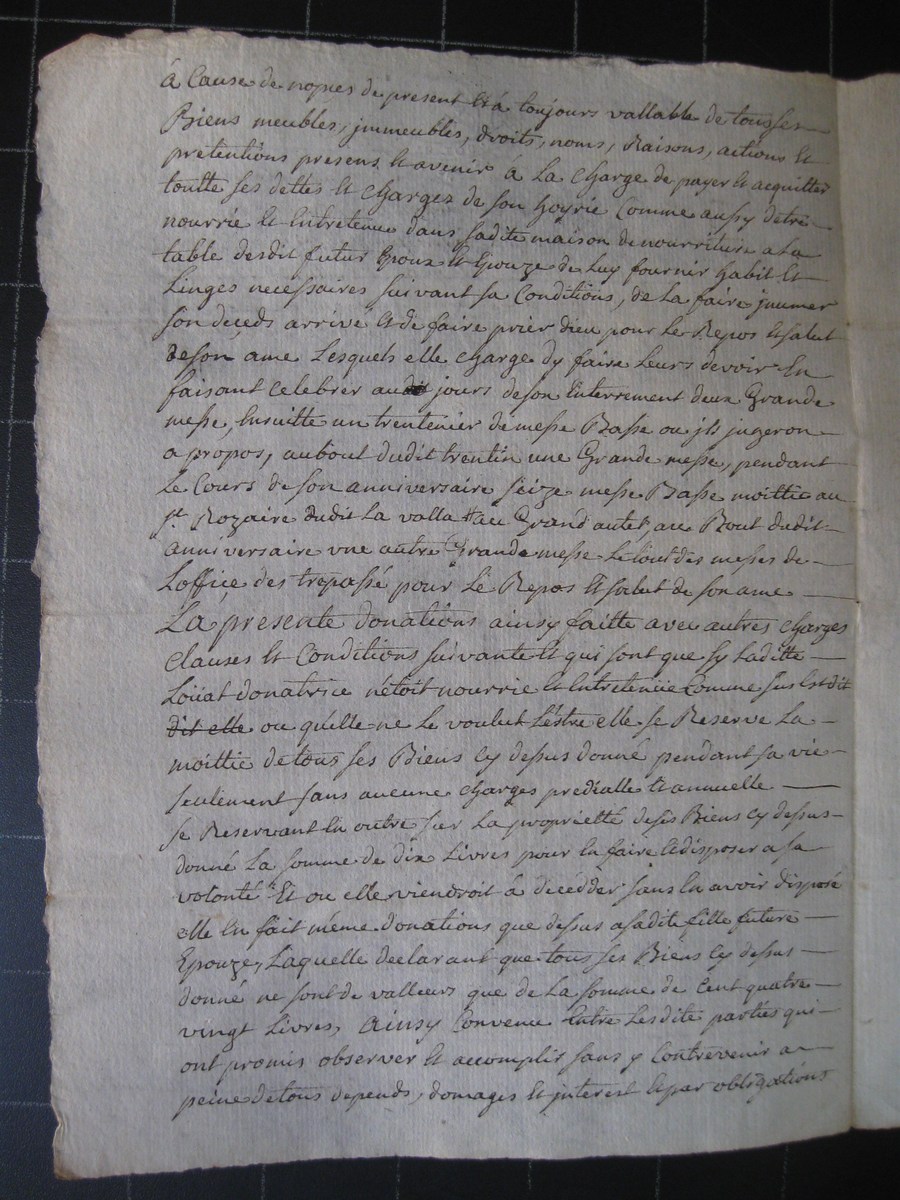 á Cause de nopces de present et á toujours vallable de tous ses
Biens meubles, jmmeubles, droits, noms, Raisons, actions et
pretentions presens et avenir á La charge de payer et acquitter
toutte ses dettes et charges de son hoyrie Comme aussy detre
nourrie et Entretenue dans sadite maison de nourriture a La
table desdit futur Epoux et Epouze de Luy fournir habit et
Linges necessaires suivant sa Conditions, de La faire jnumer
son deceds arrivé et de faire prier dieu pour le Repos et salut
de son ame Lesquels elle charge dy faire Leurs devoir En
faisant celebrer au jours de son Enterrement deux Grande
messe, Ensuitte un trentenier de messe Basse ou jls jugeron
a propos, au bout dudit trentin une Grande messe, pendant
Le Cours de son anniversaire seize messe Basse moittie au
st. Rozaire dudit La valla et au Grand autel, au Bout dudit
anniversaire vne autre Grande messe Le tout des messes de
Loffice des trepassé pour Le Repos et salut de son ame
La presente donations ainsy faitte avec autres charges
clauses et Conditions suivante et qui sont que sy Laditte
Loüat donatrice nétoit nourrie et Entretenüe Comme sus Est dit
dit elle ou quélle ne Le voulut Léstre elle se Reserve La
moittie de tous ses Biens cy dessus donné pendant sa vie
seulement sans aucune charges predialle et annuelle
se Reservant En outre sur La proprietté de ses Biens cy dessus
donné La somme de dix Livres pour En faire et disposer a sa
volonté Et ou elle viendroit á décédder sans En avoir disposé
elle En fait méme donations que dessus a sadite fille future
Epouze, Laquelle declarant que tous ses Biens cy dessus
donné ne sont de valleurs que de La somme de Cent quatre
vingt Livres, Ainsy Convenu Entre Lesdite parties qui
ont promis observer et accomplir sans y Contrevenir a
peine de tous depends, domages et jnterest et par obligations